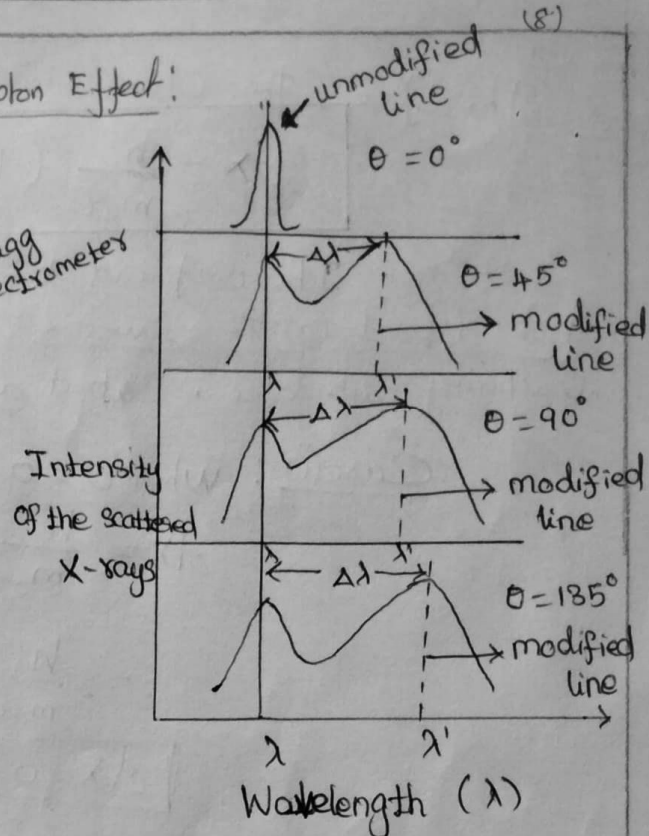 (8)
pton Effect:
unmodified
line
θ = 0°
agg
ectrometer
Δλ
θ = 45°
modified
line
λ λ'
Δλ
θ = 90°
modified
line
Intensity
of the scattered
X-rays
λ λ'
Δλ
θ = 135°
modified
line
λ λ'
Wavelength (λ)